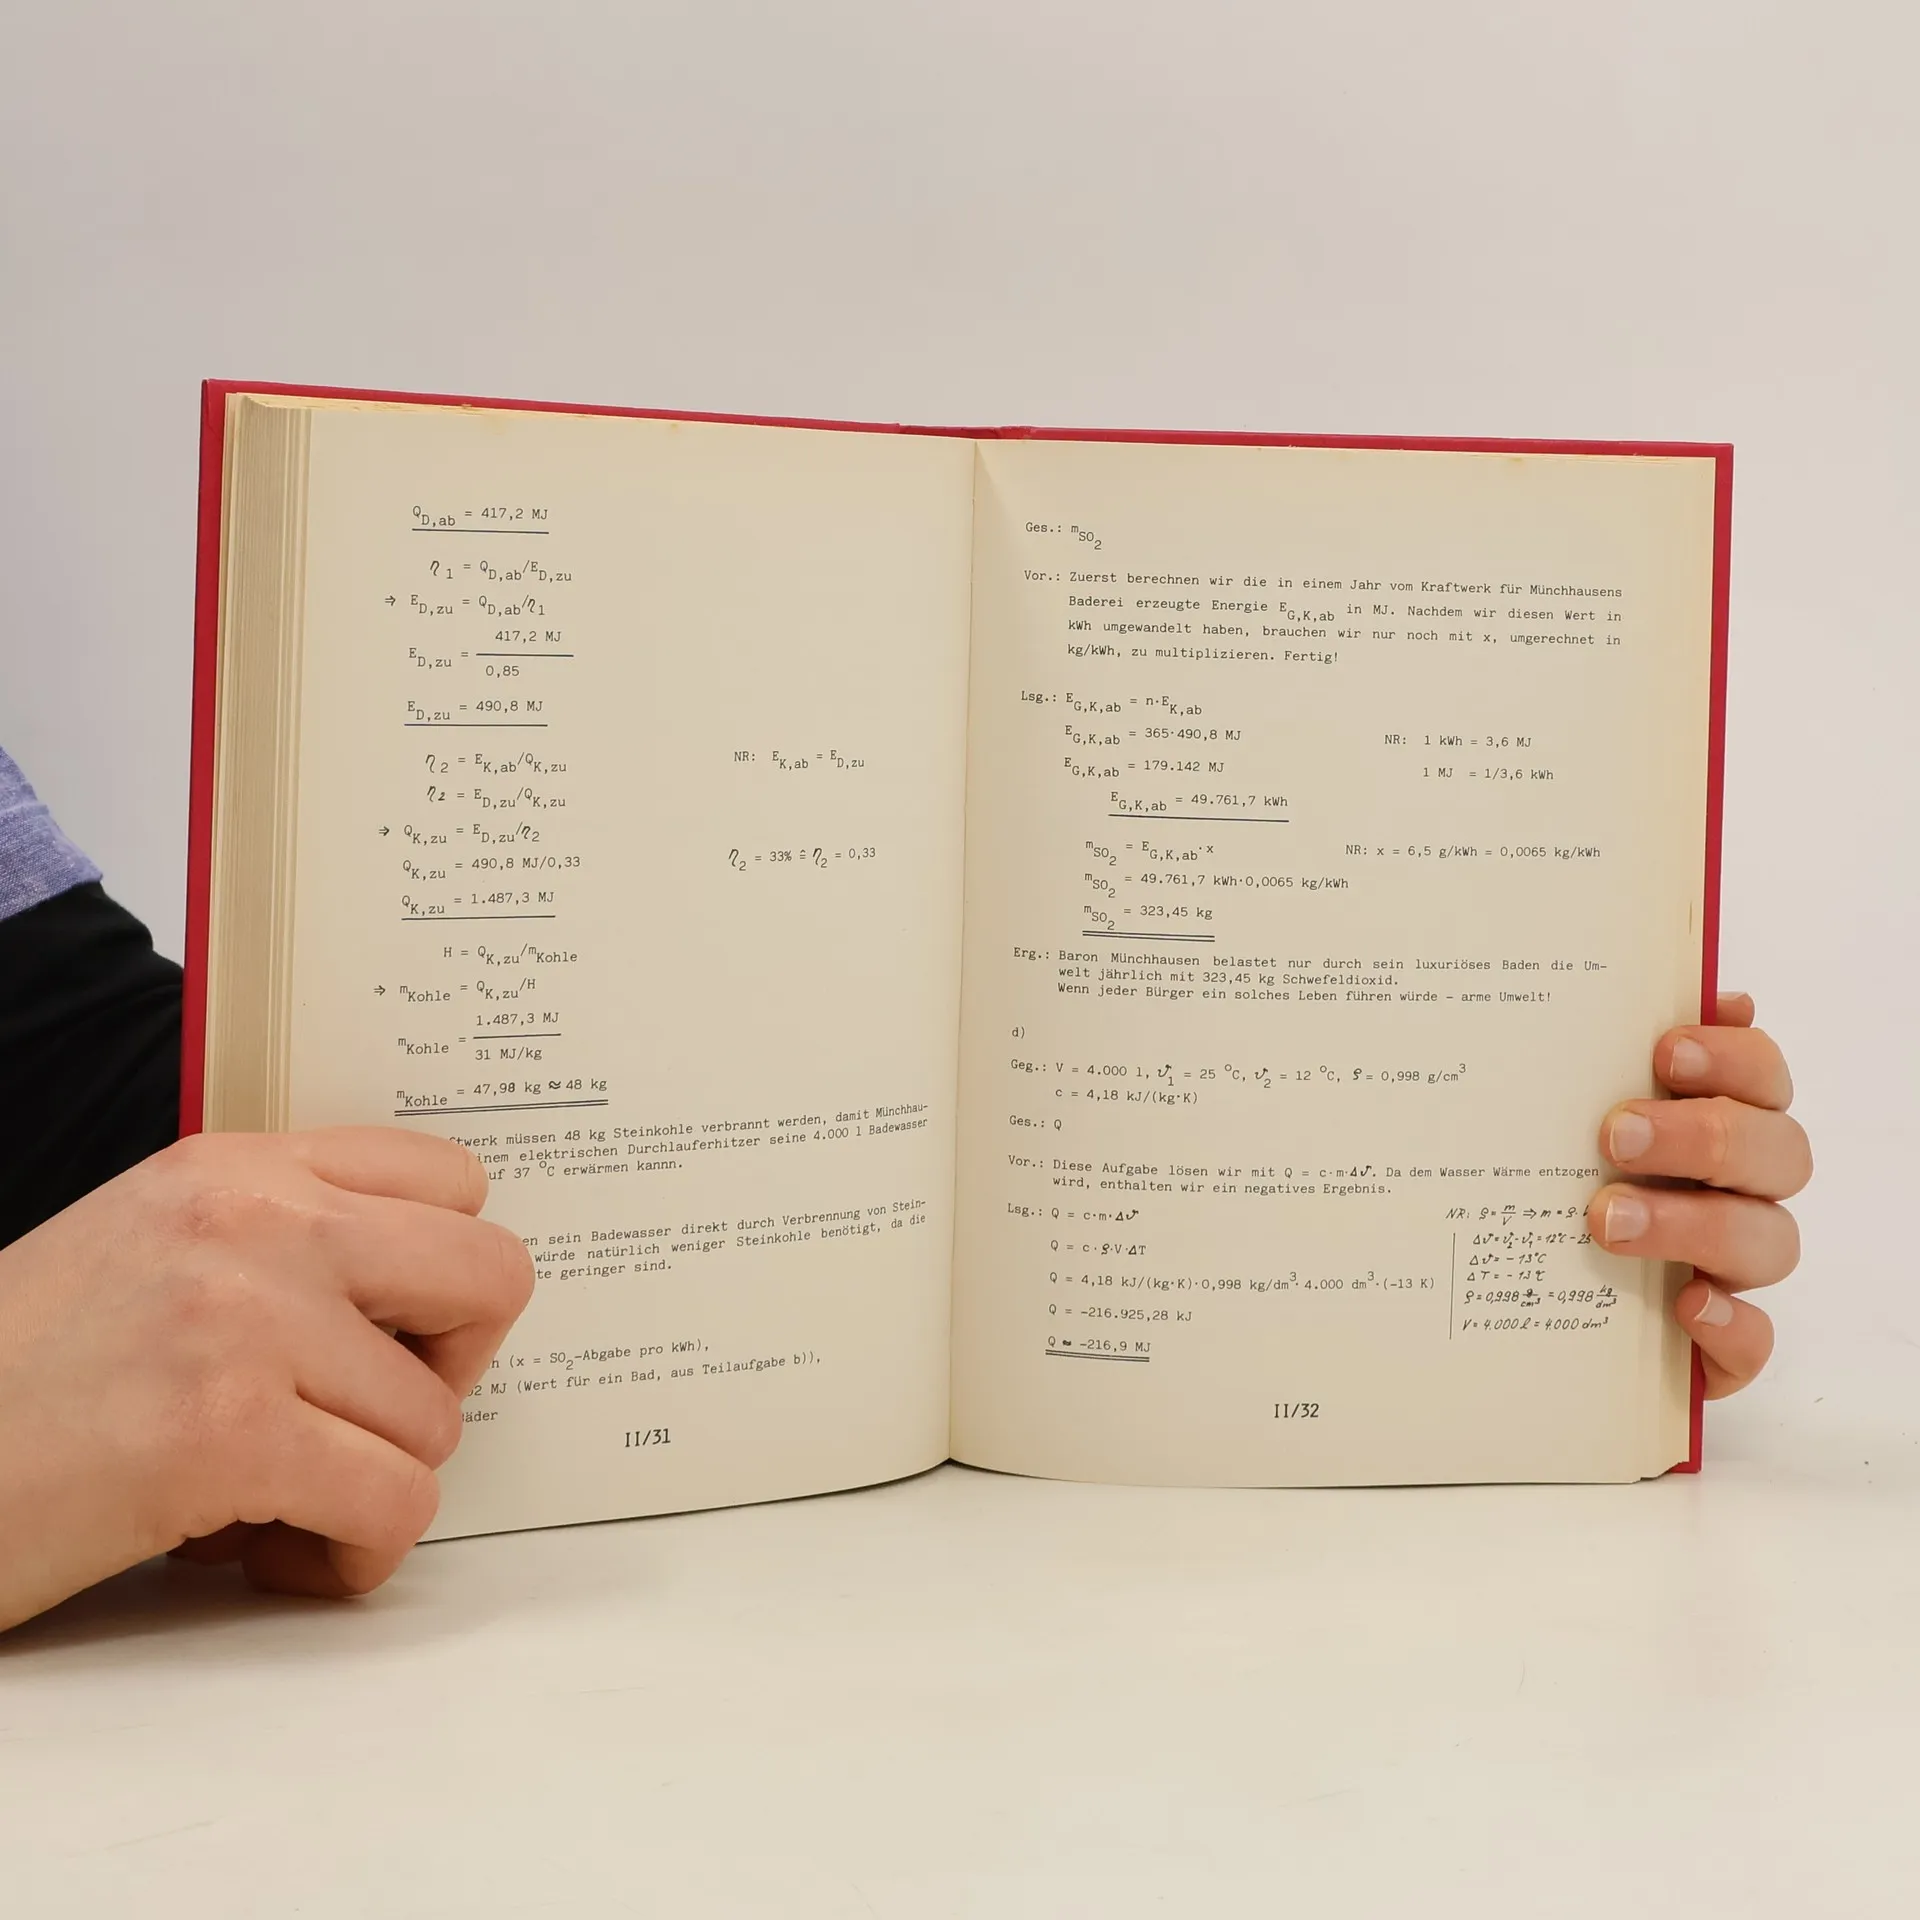 Q_D,ab = 417,2 MJ
η_1 = Q_D,ab/E_D,zu
⇒ E_D,zu = Q_D,ab/η_1
417,2 MJ
E_D,zu =
0,85
E_D,zu = 490,8 MJ
η_2 = E_K,ab/Q_K,zu NR: E_K,ab = E_D,zu
η_2 = E_D,zu/Q_K,zu
⇒ Q_K,zu = E_D,zu/η_2
Q_K,zu = 490,8 MJ/0,33 η_2 = 33% ≙ η_2 = 0,33
Q_K,zu = 1.487,3 MJ
H = Q_K,zu/m_Kohle
⇒ m_Kohle = Q_K,zu/H
1.487,3 MJ
m_Kohle =
31 MJ/kg
m_Kohle = 47,98 kg ≈ 48 kg
müssen 48 kg Steinkohle verbrannt werden, damit Münchhau-
elektrischen Durchlauferhitzer seine 4.000 l Badewasser
37 °C erwärmen kannn.
sein Badewasser direkt durch Verbrennung von Stein-
würde natürlich weniger Steinkohle benötigt, da die
geringer sind.
(x = SO_2-Abgabe pro kWh),
MJ (Wert für ein Bad, aus Teilaufgabe b)),
II/31
Ges.: m_SO_2
Vor.: Zuerst berechnen wir die in einem Jahr vom Kraftwerk für Münchhausens
Baderei erzeugte Energie E_G,K,ab in MJ. Nachdem wir diesen Wert in
kWh umgewandelt haben, brauchen wir nur noch mit x, umgerechnet in
kg/kWh, zu multiplizieren. Fertig!
Lsg.: E_G,K,ab = n·E_K,ab
E_G,K,ab = 365·490,8 MJ NR: 1 kWh = 3,6 MJ
E_G,K,ab = 179.142 MJ 1 MJ = 1/3,6 kWh
E_G,K,ab = 49.761,7 kWh
m_SO_2 = E_G,K,ab·x NR: x = 6,5 g/kWh = 0,0065 kg/kWh
m_SO_2 = 49.761,7 kWh·0,0065 kg/kWh
m_SO_2 = 323,45 kg
Erg.: Baron Münchhausen belastet nur durch sein luxuriöses Baden die Um-
welt jährlich mit 323,45 kg Schwefeldioxid.
Wenn jeder Bürger ein solches Leben führen würde - arme Umwelt!
d)
Geg.: V = 4.000 l, ϑ_1 = 25 °C, ϑ_2 = 12 °C, ϱ = 0,998 g/cm³
c = 4,18 kJ/(kg·K)
Ges.: Q
Vor.: Diese Aufgabe lösen wir mit Q = c·m·Δϑ. Da dem Wasser Wärme entzogen
wird, enthalten wir ein negatives Ergebnis.
Lsg.: Q = c·m·Δϑ
Q = c·ϱ·V·ΔT
Q = 4,18 kJ/(kg·K)·0,998 kg/dm³·4.000 dm³·(-13 K)
Q = -216.925,28 kJ
Q ≈ -216,9 MJ
NR: ϱ = m/V ⇒ m = ϱ·
Δϑ = ϑ_2 - ϑ_1 = 12°C - 25
Δϑ = -13°C
ΔT = -13 °C
ϱ = 0,998 g/cm³ = 0,998 kg/dm³
V = 4.000 l = 4.000 dm³
II/32